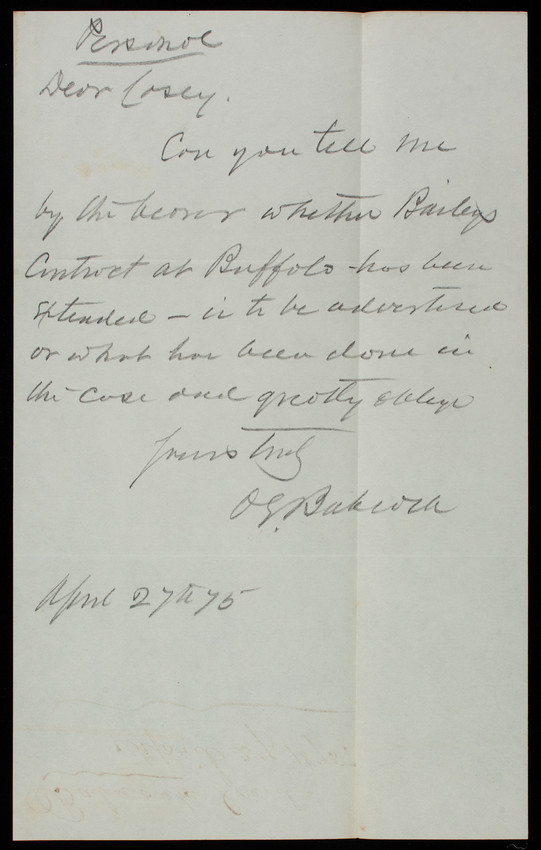 Personal
Dear Casey.
Can you tell me
by the bearer whether Baileys
Contract at Buffalo has been
extended - is to be advertised
or what has been done in
the case and greatly oblige
Yours truly
O E. Babcock
April 27th 75